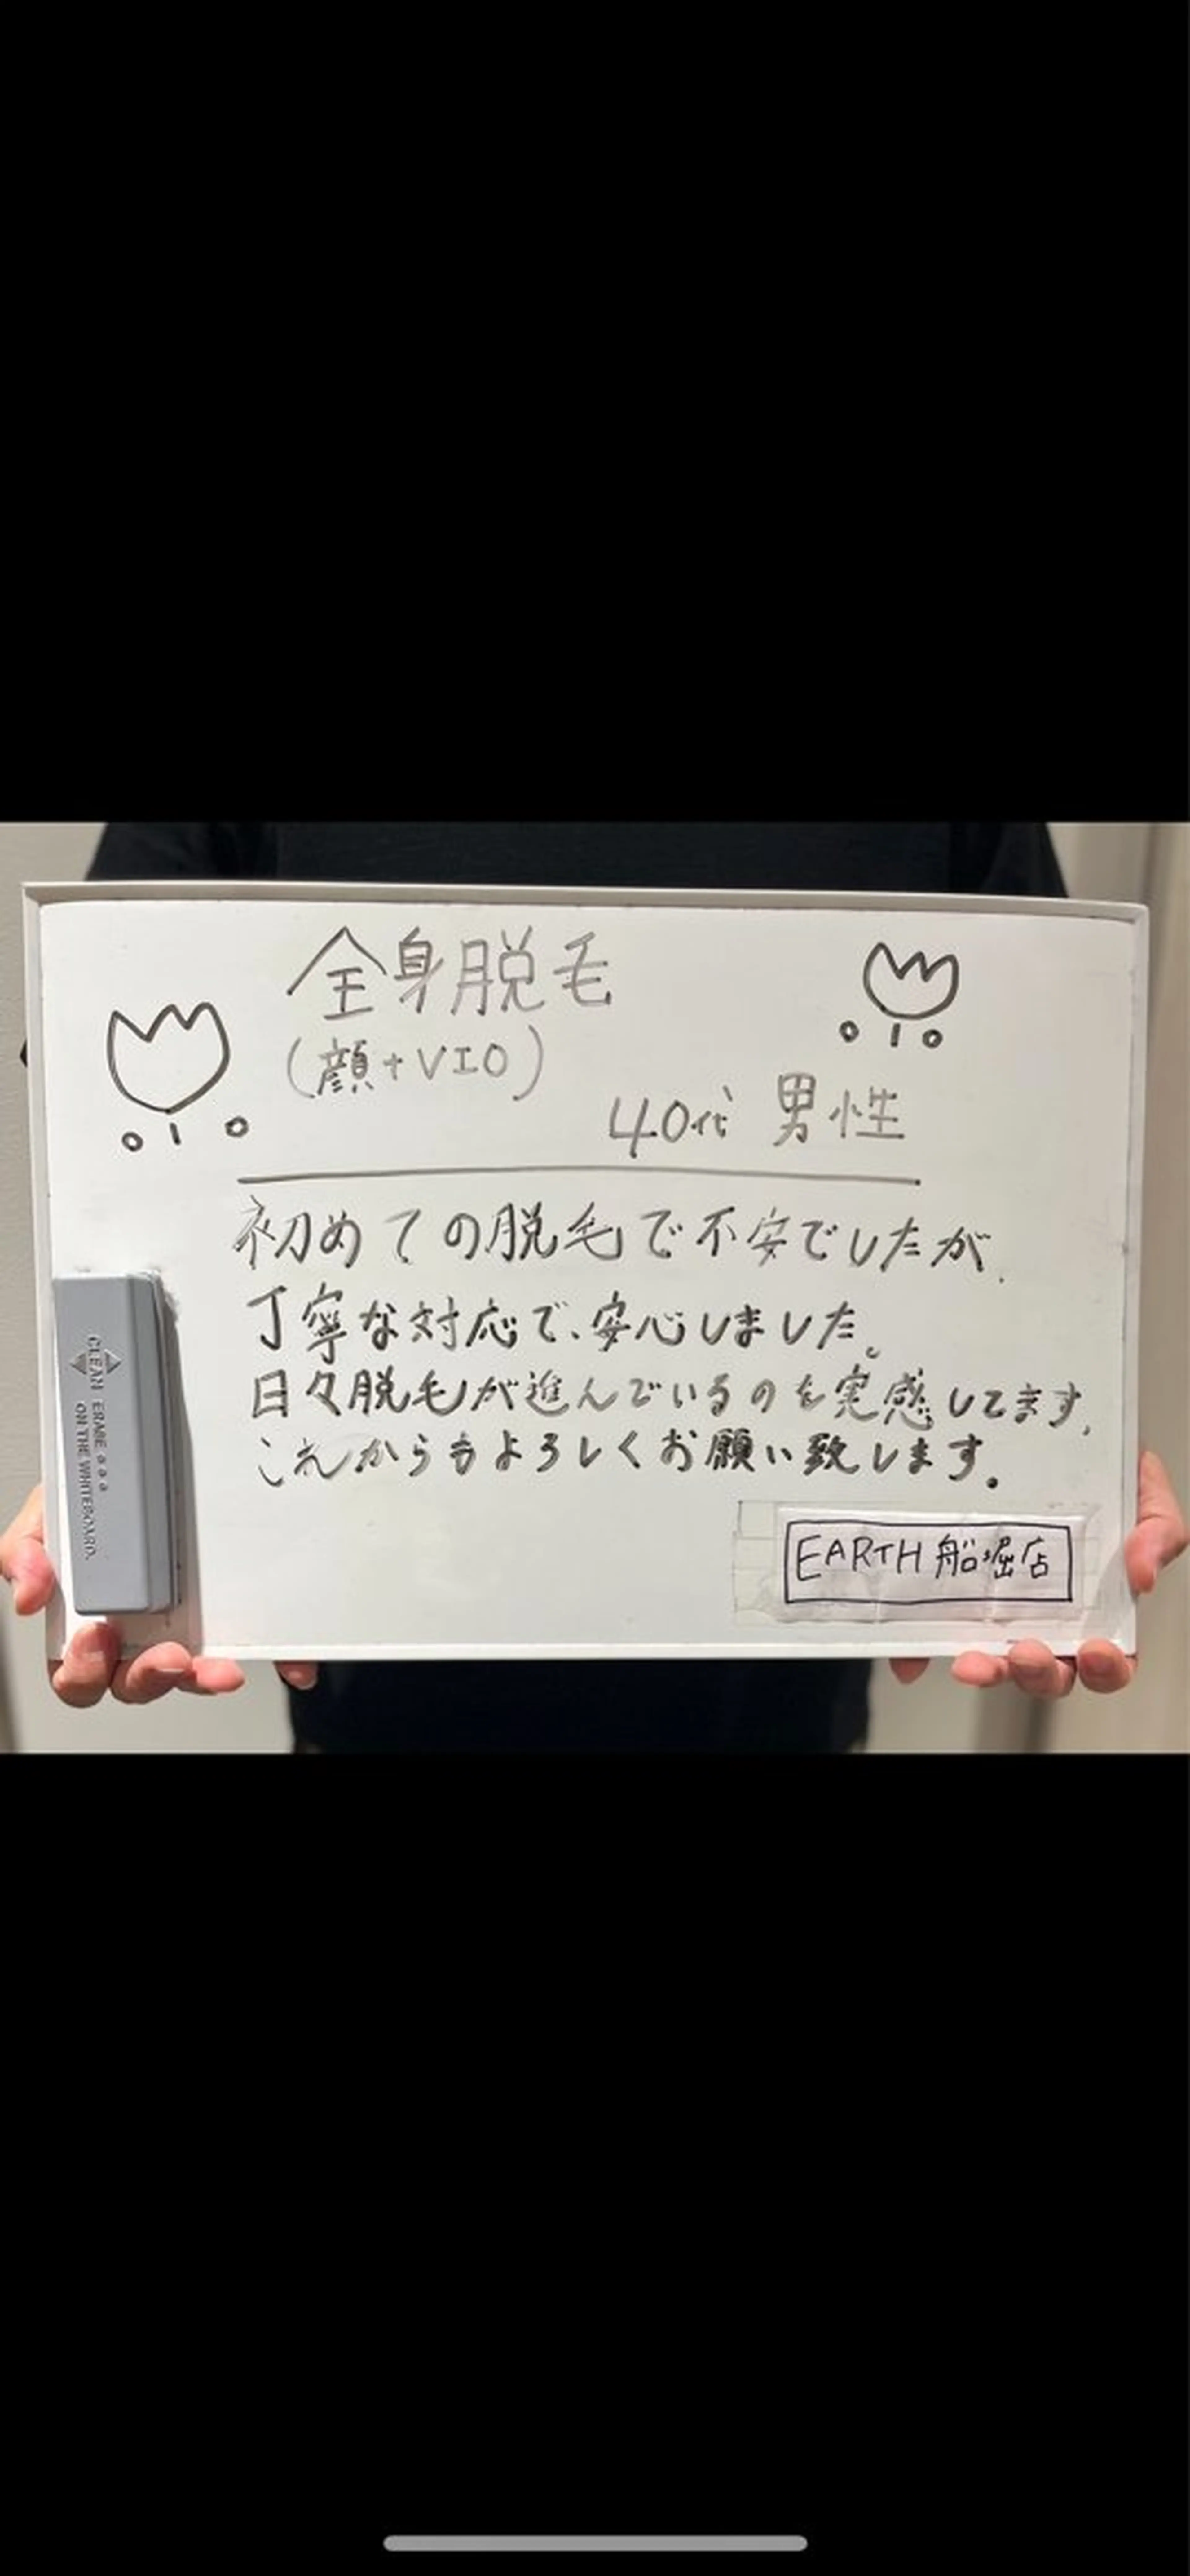 全身脱毛
(顔+VIO)
40代 男性
初めての脱毛で不安でしたが、
丁寧な対応で、安心しました。
日々脱毛が進んでいるのを実感してます。
これからもよろしくお願い致します。
EARTH 船堀店
CLEAN ERASE a a a
ON THE WHITEBOARD.